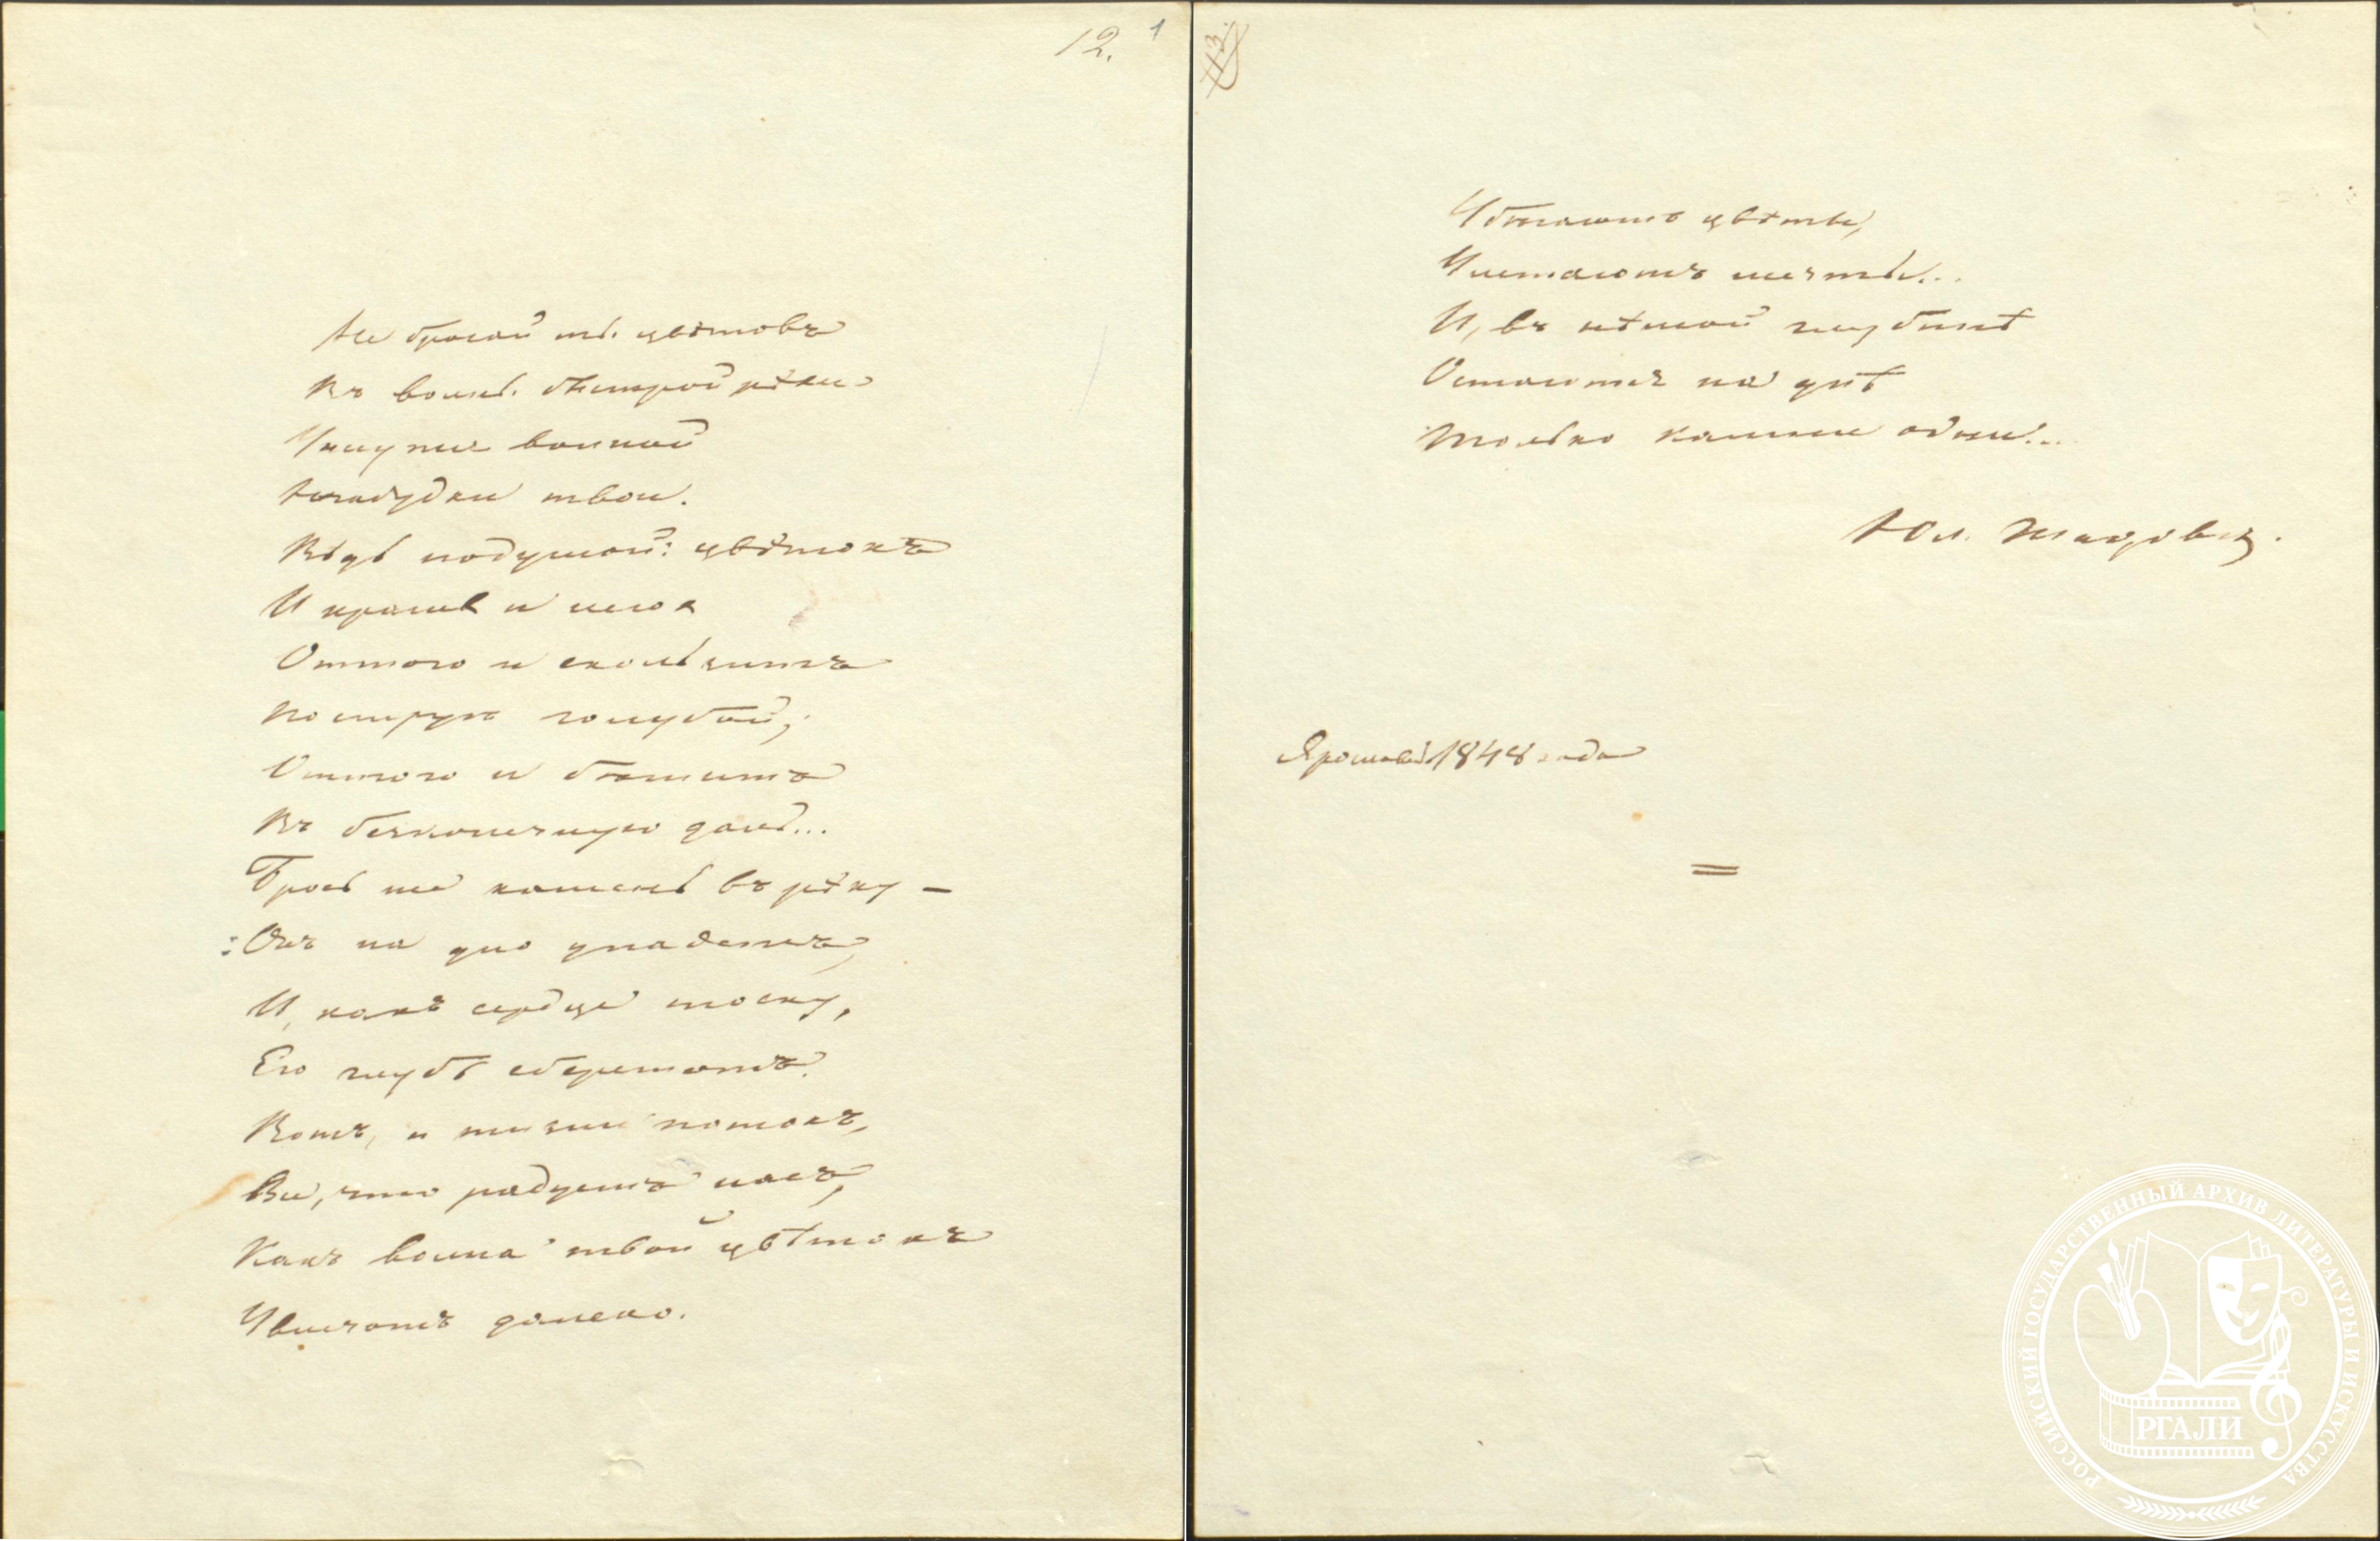 12. 1
Не бросай ты цвѣтовъ
Въ волны быстрой рѣки
Унесутся волной
Незабудки твои.
Вѣдь подумай: цвѣтокъ
И красивъ и легокъ
Оттого и скользитъ
По струѣ голубой;
Оттого и бѣжитъ
Въ безконечную даль...
Брось же камень въ рѣку —
Онъ на дно упадетъ,
И, какъ сердце тоску,
Его глубь сбережетъ.
Вотъ, и жизни потокъ,
Все, что радуетъ насъ,
Какъ волна твой цвѣтокъ
Увлечотъ далеко.
13.
Убѣгаютъ цвѣты,
Улетаютъ мечты...
И, въ нѣмой глубинѣ
Остаются на днѣ
Только камни одни...
Юл. Жадовск.
Ярославль 1848 года
РОССИЙСКИЙ ГОСУДАРСТВЕННЫЙ АРХИВ ЛИТЕРАТУРЫ И ИСКУССТВА
РГАЛИ